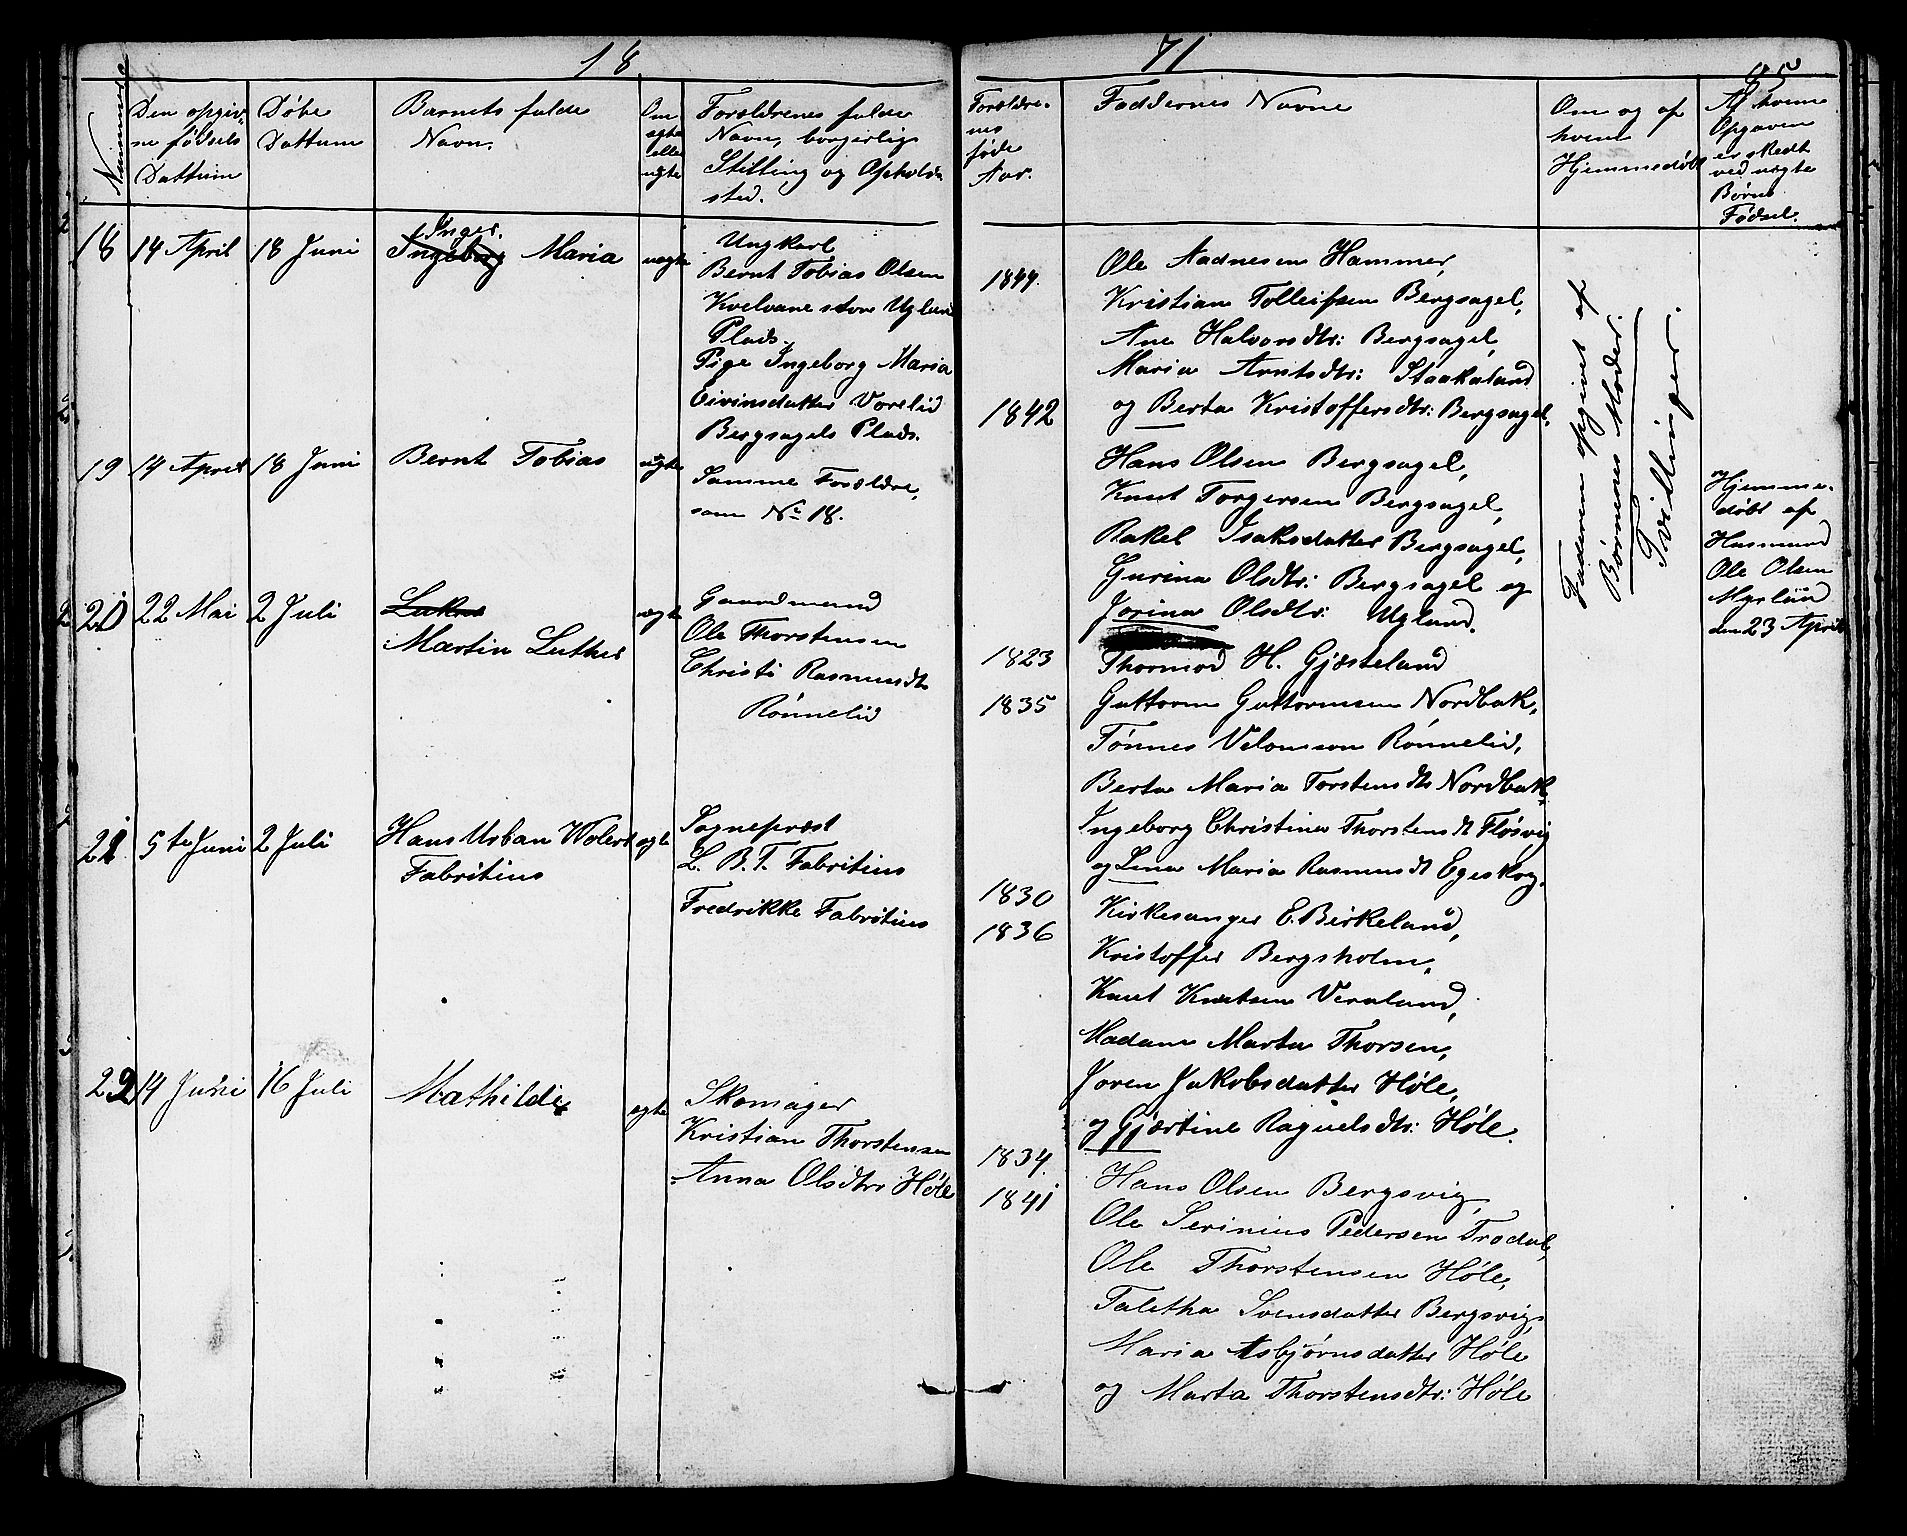 18
71
85
Nummer
Den opgiv-
ne fødsels
Dattum
Døbe
Dattum
Barnets fulde
Navn.
Om
egte
eller
uegte
Forældrenes fulde
Navn, borgerlig
Stilling og Opholds
sted.
Forældre-
nes
føde
Aar.
Faddernes Navne
Om og af
hvem
Hjemmedøbt
Af hvem
Opgaven
er skedt
ved uegte
Børns
Fødsel.
18
14 April
18 Juni
Inger.
Ingeborg Maria
uegte
Ungkarl
Bernt Tobias Olsen
Kvelvane store Ugland
Plads.
Pige Ingeborg Maria
Eivinsdatter Vorelid
Bergsagels Plads.
1844.
1842
Ole Aadnesen Hammer,
Kristian Tolleifsen Bergsagel,
Ane Halvorsdtr: Bergsagel,
Maria Arntsdtr: Staakaland
og Berta Kristoffersdtr: Bergsagel.
Faderen opgivet af
Børnenes Moder.
Tvillinger.
19
14 April
18 Juni
Bernt Tobias
uegte
Samme Forældre,
som No 18.
Hans Olsen Bergsagel,
Knut Torgersen Bergsagel,
Rakel Isaksdatter Bergsagel,
Gurina Olsdtr: Bergsagel og
Jorina Olsdtr: Ugland.
og
Hjemme-
døbt af
Husmand
Ole Olsen
Myrlund
den 23 April
20
22 Mai
2 Juli
Martin Luther
egte
Gaardmand
Ole Thorstensen
Christi Rasmusdtr
Rønnelid
1823
1835
Thormod H. Gjæsteland
Guttorm Guttormsen Nordbak,
Tønnes Velomson Rønnelid,
Berta Maria Torstensdtr Nordbak,
Ingeborg Christine Thorstensdt Fløsvig
og Lena Maria Rasmusdt Egeskog.
21
5te Juni
2 Juli
Hans Urban Wolert
Fabritius
egte
Sognepræst
L. B. T. Fabritius
Fredrikke Fabritius
1830
1836
Kirkesanger E. Birkeland,
Kristoffer Bergsholm,
Knut Knutsen Veraland,
Madam Marta Thorsen,
Joren Jakobsdatter Høle,
og Gjærtine Raguelsdtr: Høle.
22
14 Juni
16 Juli
Mathilde
egte
Skomager
Kristian Thorstensen
Anna Olsdtr Høle
1834.
1841
Hans Olsen Bergsvig,
Ole Serinius Pedersen Trodal,
Ole Thorstensen Høle,
Taletha Svensdatter Bergsvig,
Maria Asbjørnsdatter Høle
og Marta Thorstensdtr: Høle